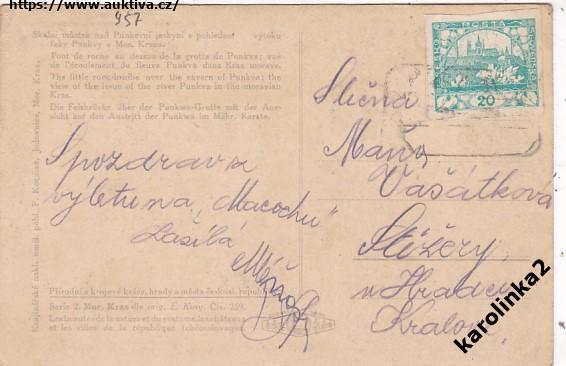 https://www.auktiva.cz/
957
Skalní můstek nad Punkevní jeskyní s pohledem výtoku
řeky Punkvy v Mor. Krasu.
Pont de roche au dessus de la grotte de Punkva; vue
de l'écoulement du fleuve Punkva dans Kras morave.
The little rock-bridhe over the cavern of Punkva; the
view of the issue of the river Punkva in the moravian
Kras.
Die Felsbrücke über der Punkwa-Grotte mit der Aus-
sicht auf den Austritt der Punkwa im Mähr. Karste.
POŠTA
20
Slečna
Máňa
Vašátková
Stěžery
u Hradce
Králové
S pozdravem z
výletu na „Macochu"
zasílá
Přírodní a krajové krásy, hrady a města českosl. republiky
Serie 2. Mor. Kras dle orig. E. Cís. 259.
Les beautés de la nature et du costume, les châteaux
et les villes de la république tchécoslovaque
karolinka2